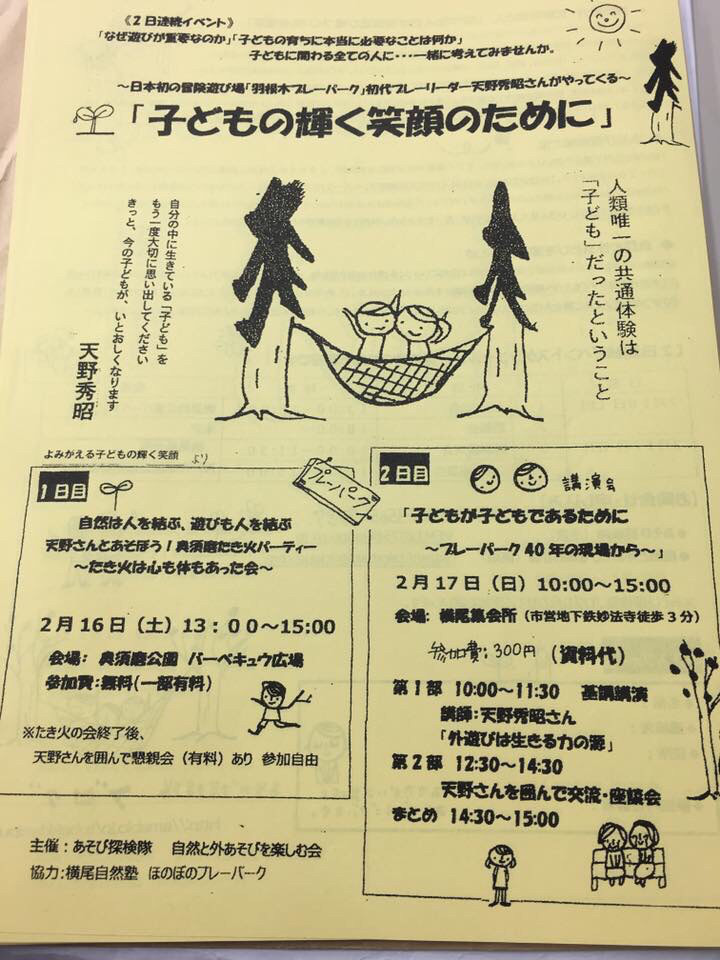 《2日連続イベント》
「なぜ遊びが重要なのか」「子どもの育ちに本当に必要なことは何か」
子どもに関わる全ての人に・・・一緒に考えてみませんか。
～日本初の冒険遊び場「羽根木プレーパーク」初代プレーリーダー天野秀昭さんがやってくる～
「子どもの輝く笑顔のために」
人類唯一の共通体験は
「子ども」だったということ
自分の中に生きている「子ども」を
もう一度大切に思い出してください
きっと、今の子どもが、いとおしくなります
天野秀昭
よみがえる子どもの輝く笑顔 より
プレーパーク
1日目
自然は人を結ぶ、遊びも人を結ぶ
天野さんとあそぼう！奥須磨たき火パーティー
～たき火は心も体もあった会～
2月16日（土）13：00～15:00
会場： 奥須磨公園 バーベキュウ広場
参加費：無料（一部有料）
※たき火の会終了後、
天野さんを囲んで懇親会（有料）あり 参加自由
主催：あそび探検隊 自然と外あそびを楽しむ会
協力：横尾自然塾 ほのぼのプレーパーク
2日目
講演会
「子どもが子どもであるために
～プレーパーク40年の現場から～」
2月17日（日）10:00～15:00
会場： 横尾集会所（市営地下鉄妙法寺徒歩3分）
参加費：300円（資料代）
第1部 10:00～11:30 基調講演
講師：天野秀昭さん
「外遊びは生きる力の源」
第2部 12:30～14:30
天野さんを囲んで交流・座談会
まとめ 14:30～15:00